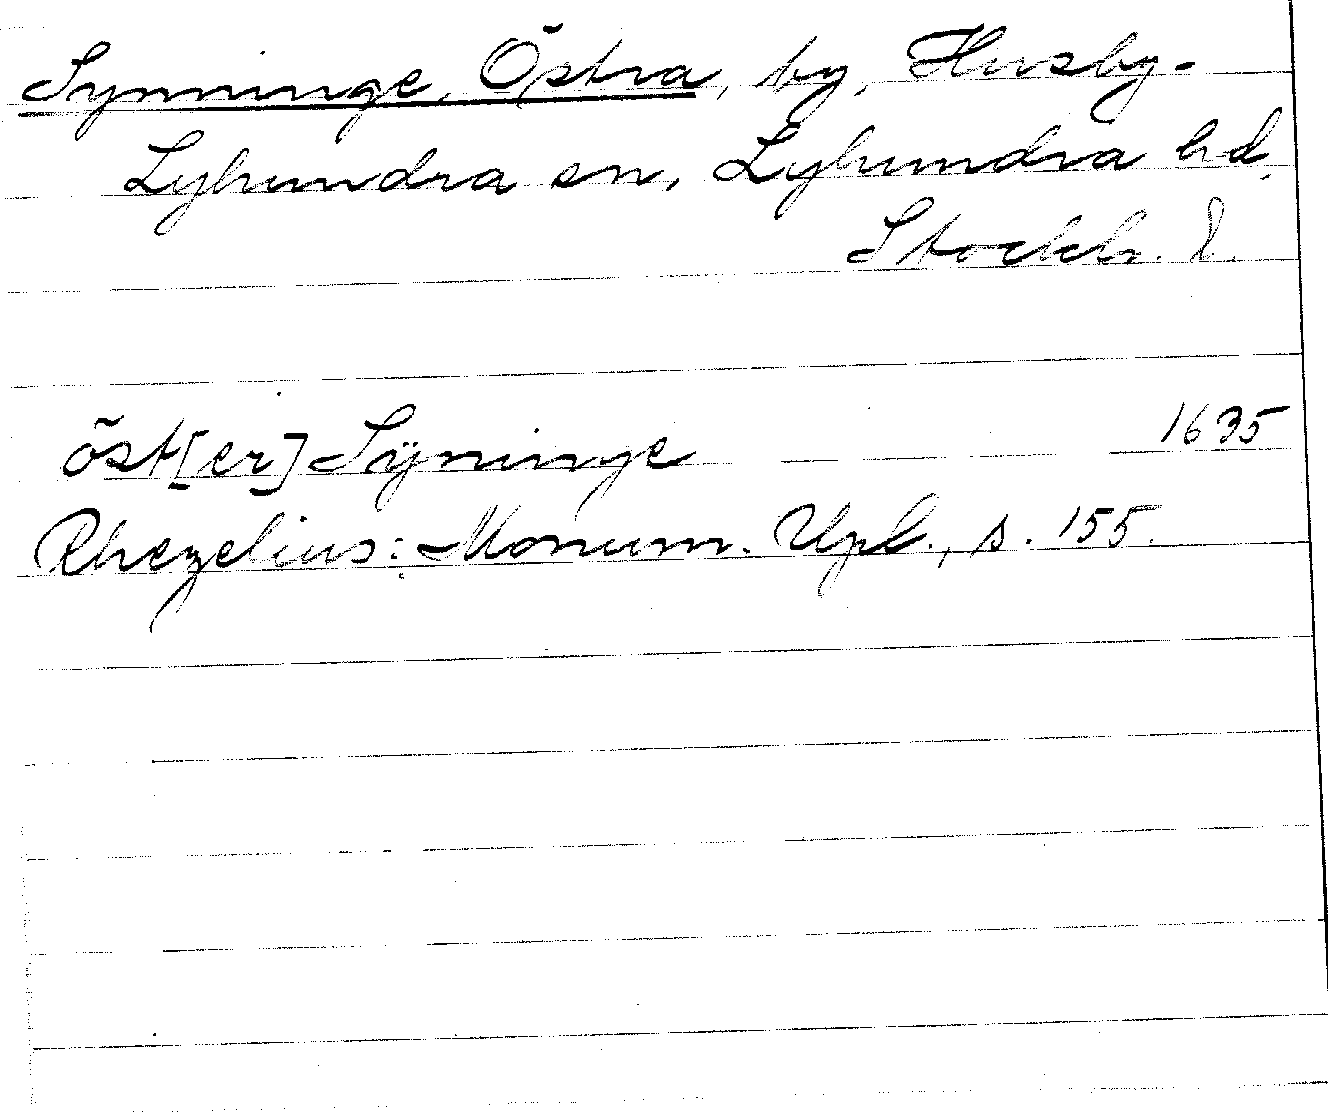 Synninge, Östra, by, Husby-
Lyhundra sn, Lyhundra hd,
Stockh. l.
öst[er] Sÿninge 1635
Rhezelius: Monum. Upl., s. 155.